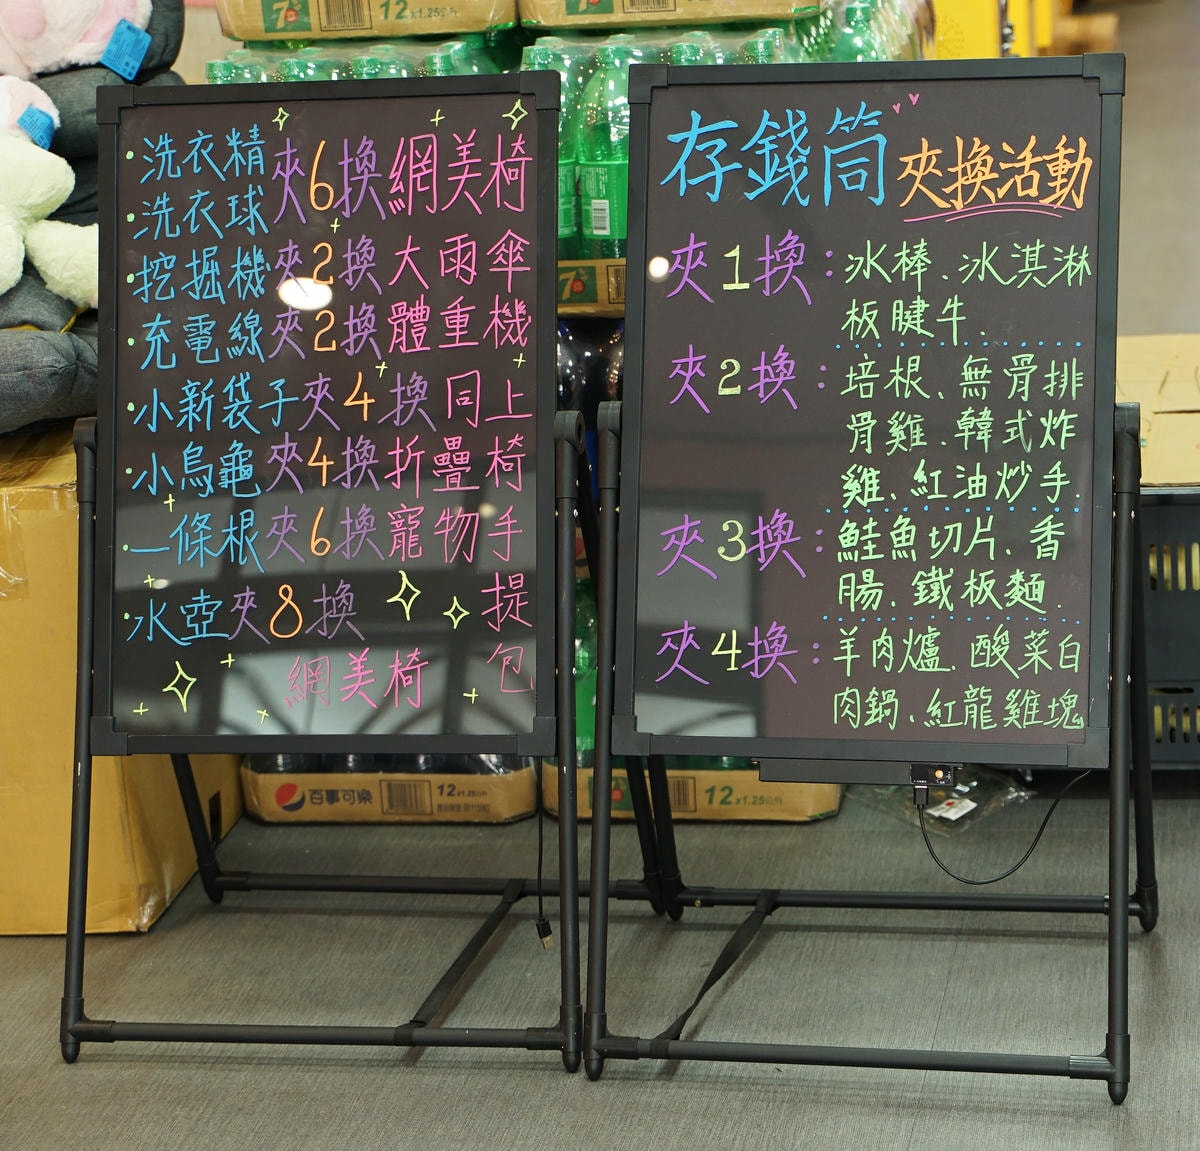 洗衣精
洗衣球
夾6換網美椅
挖掘機夾2換大雨傘
充電線夾2換體重機
小新袋子夾4換同上
小烏龜夾4換折疊椅
一條根夾6換寵物手
提
包
水壺夾8換
網美椅
存錢筒夾換活動
夾1換:冰棒、冰淇淋
板腱牛.
夾2換:培根、無骨排
骨雞、韓式炸
雞、紅油炒手.
夾3換:鮭魚切片、香
腸、鐵板麵.
夾4換:羊肉爐、酸菜白
肉鍋、紅龍雞塊
7
12x1.25公升
7
7
百事可樂
12x1.25公升
12x1.25公升